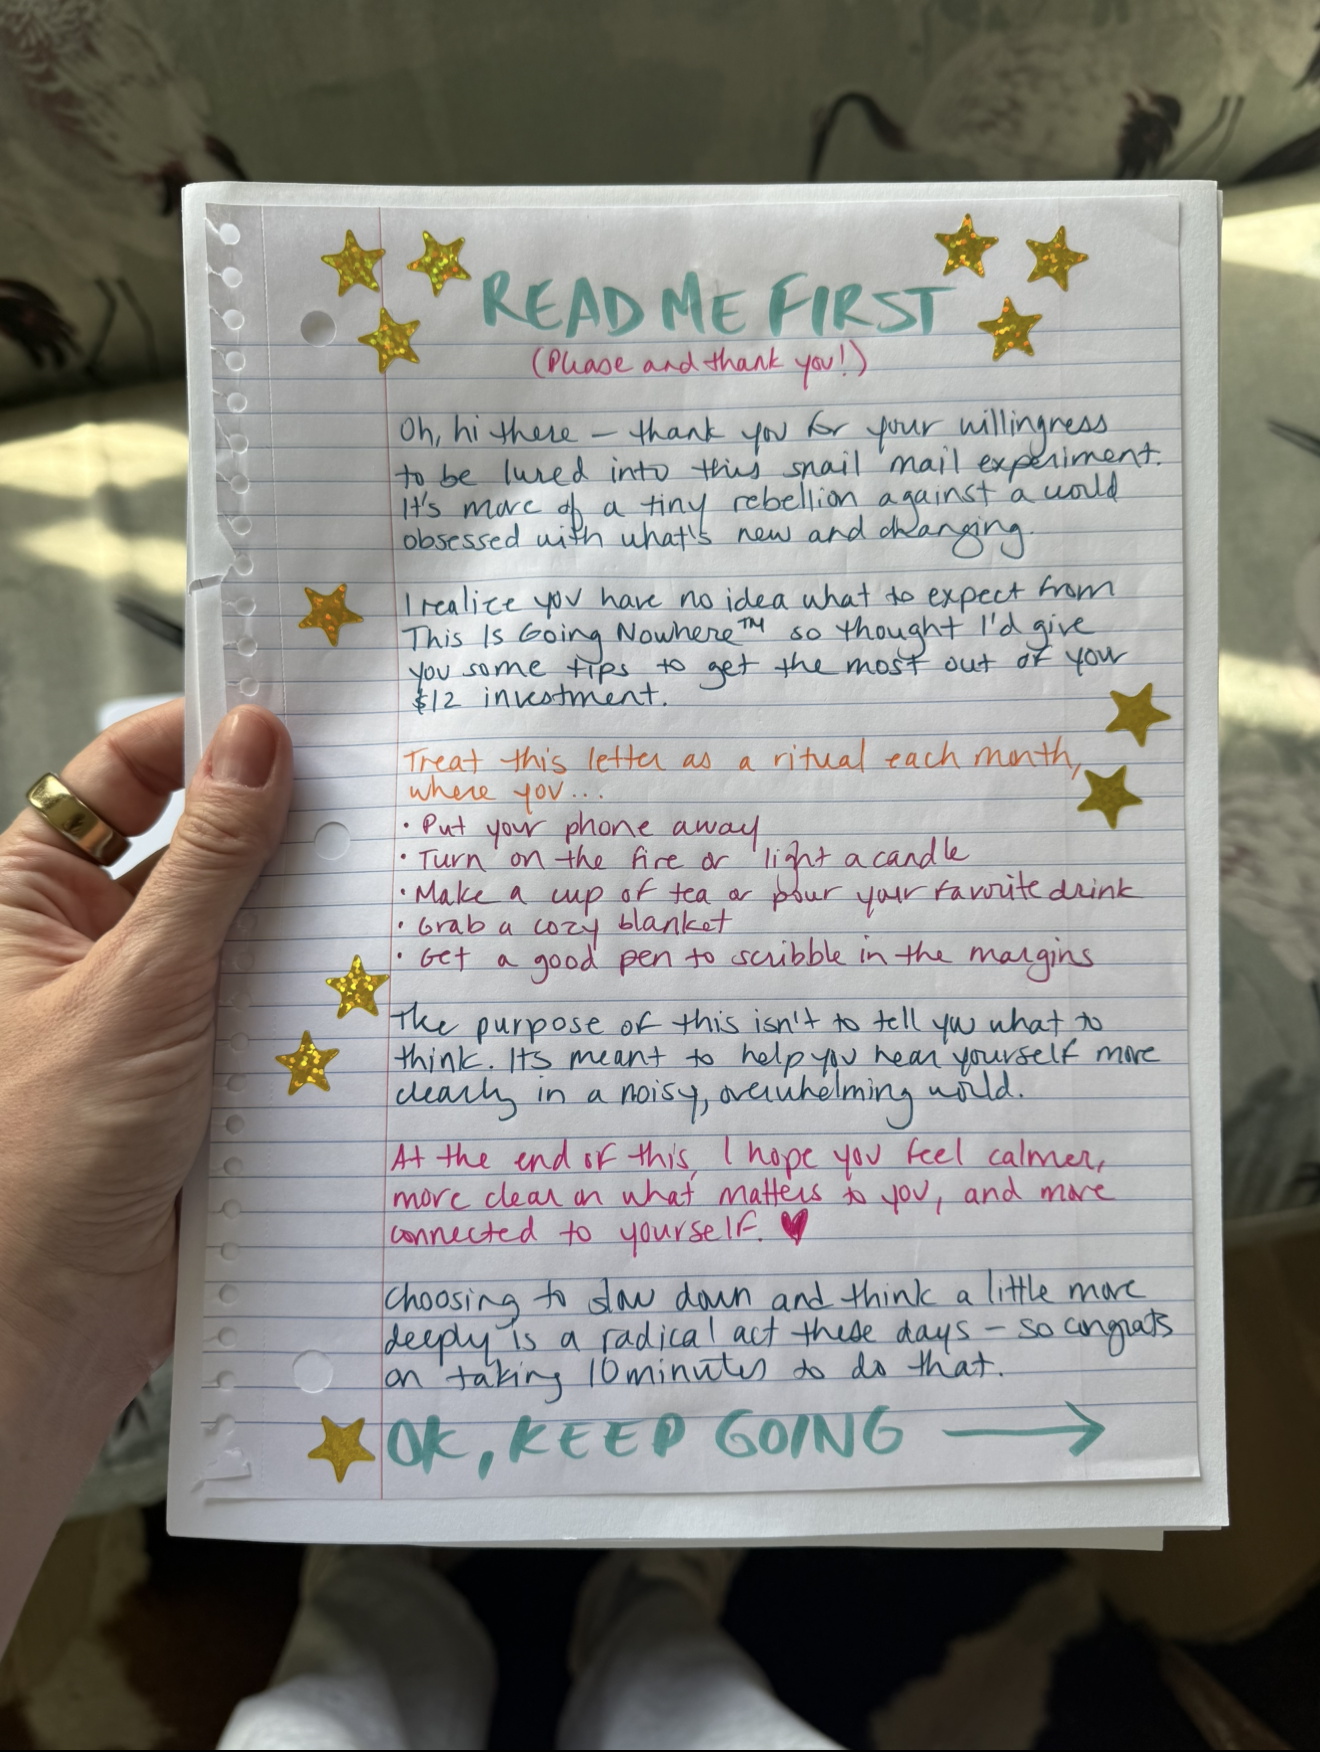 READ ME FIRST
(Please and thank you!)
Oh, hi there – thank you for your willingness
to be lured into this snail mail experiment.
It's more of a tiny rebellion against a world
obsessed with what's new and changing.
I realize you have no idea what to expect from
This Is Going Nowhere™ so thought I'd give
you some tips to get the most out of your
$12 investment.
Treat this letter as a ritual each month,
where you...
• Put your phone away
• Turn on the fire or light a candle
• Make a cup of tea or pour your favourite drink
• Grab a cozy blanket
• Get a good pen to scribble in the margins
The purpose of this isn't to tell you what to
think. Its meant to help you hear yourself more
clearly in a noisy, overwhelming world.
At the end of this, I hope you feel calmer,
more clear on what matters to you, and more
connected to yourself. ♥
Choosing to slow down and think a little more
deeply is a radical act these days – so congrats
on taking 10 minutes to do that.
OK, KEEP GOING →